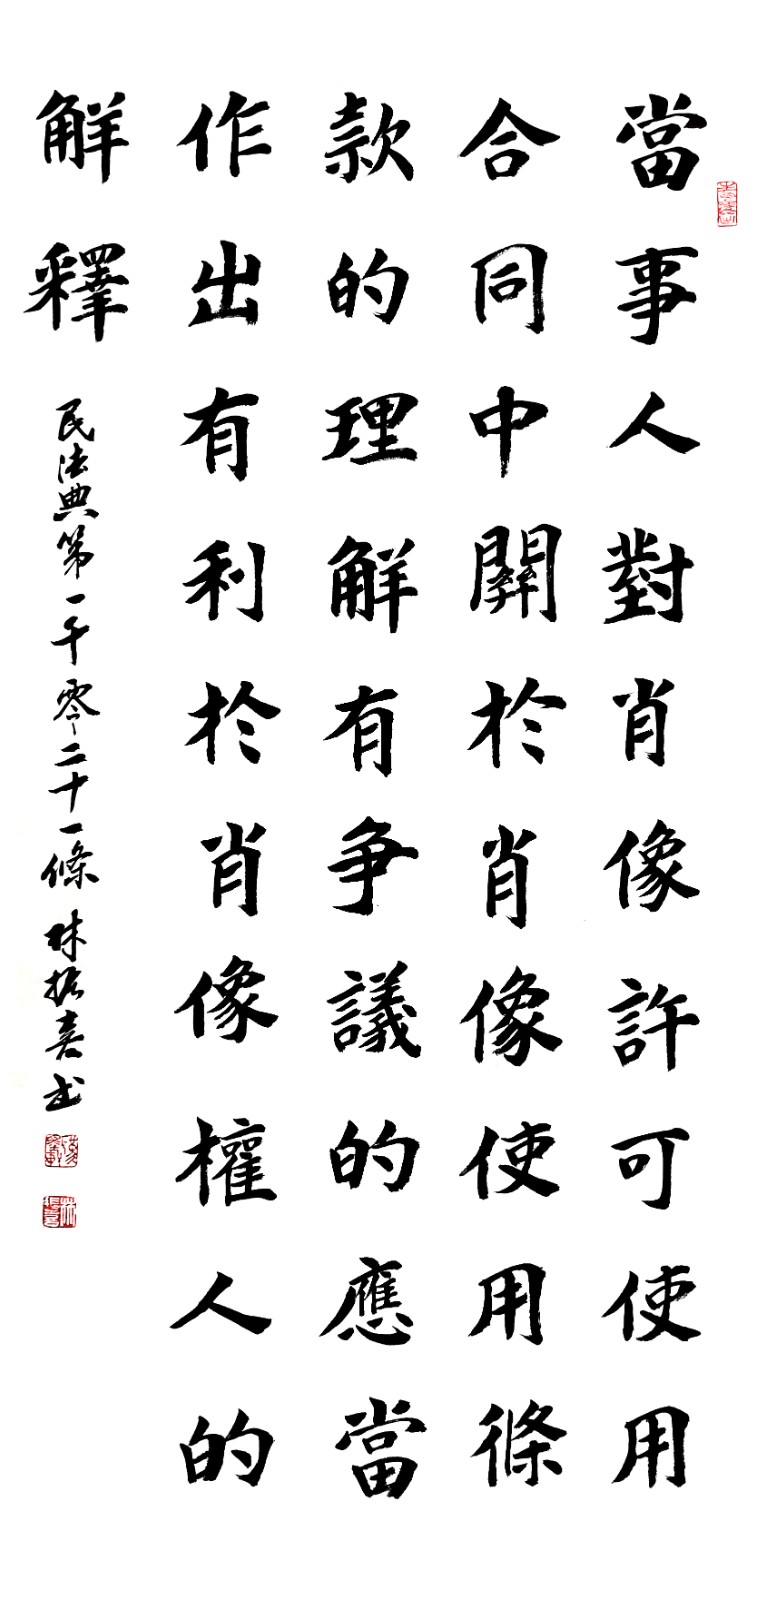 當事人對肖像許可使用
合同中關於肖像使用條
款的理解有争議的應當
作出有利於肖像權人的
解釋
民法典第一千零二十一條 林振喜书